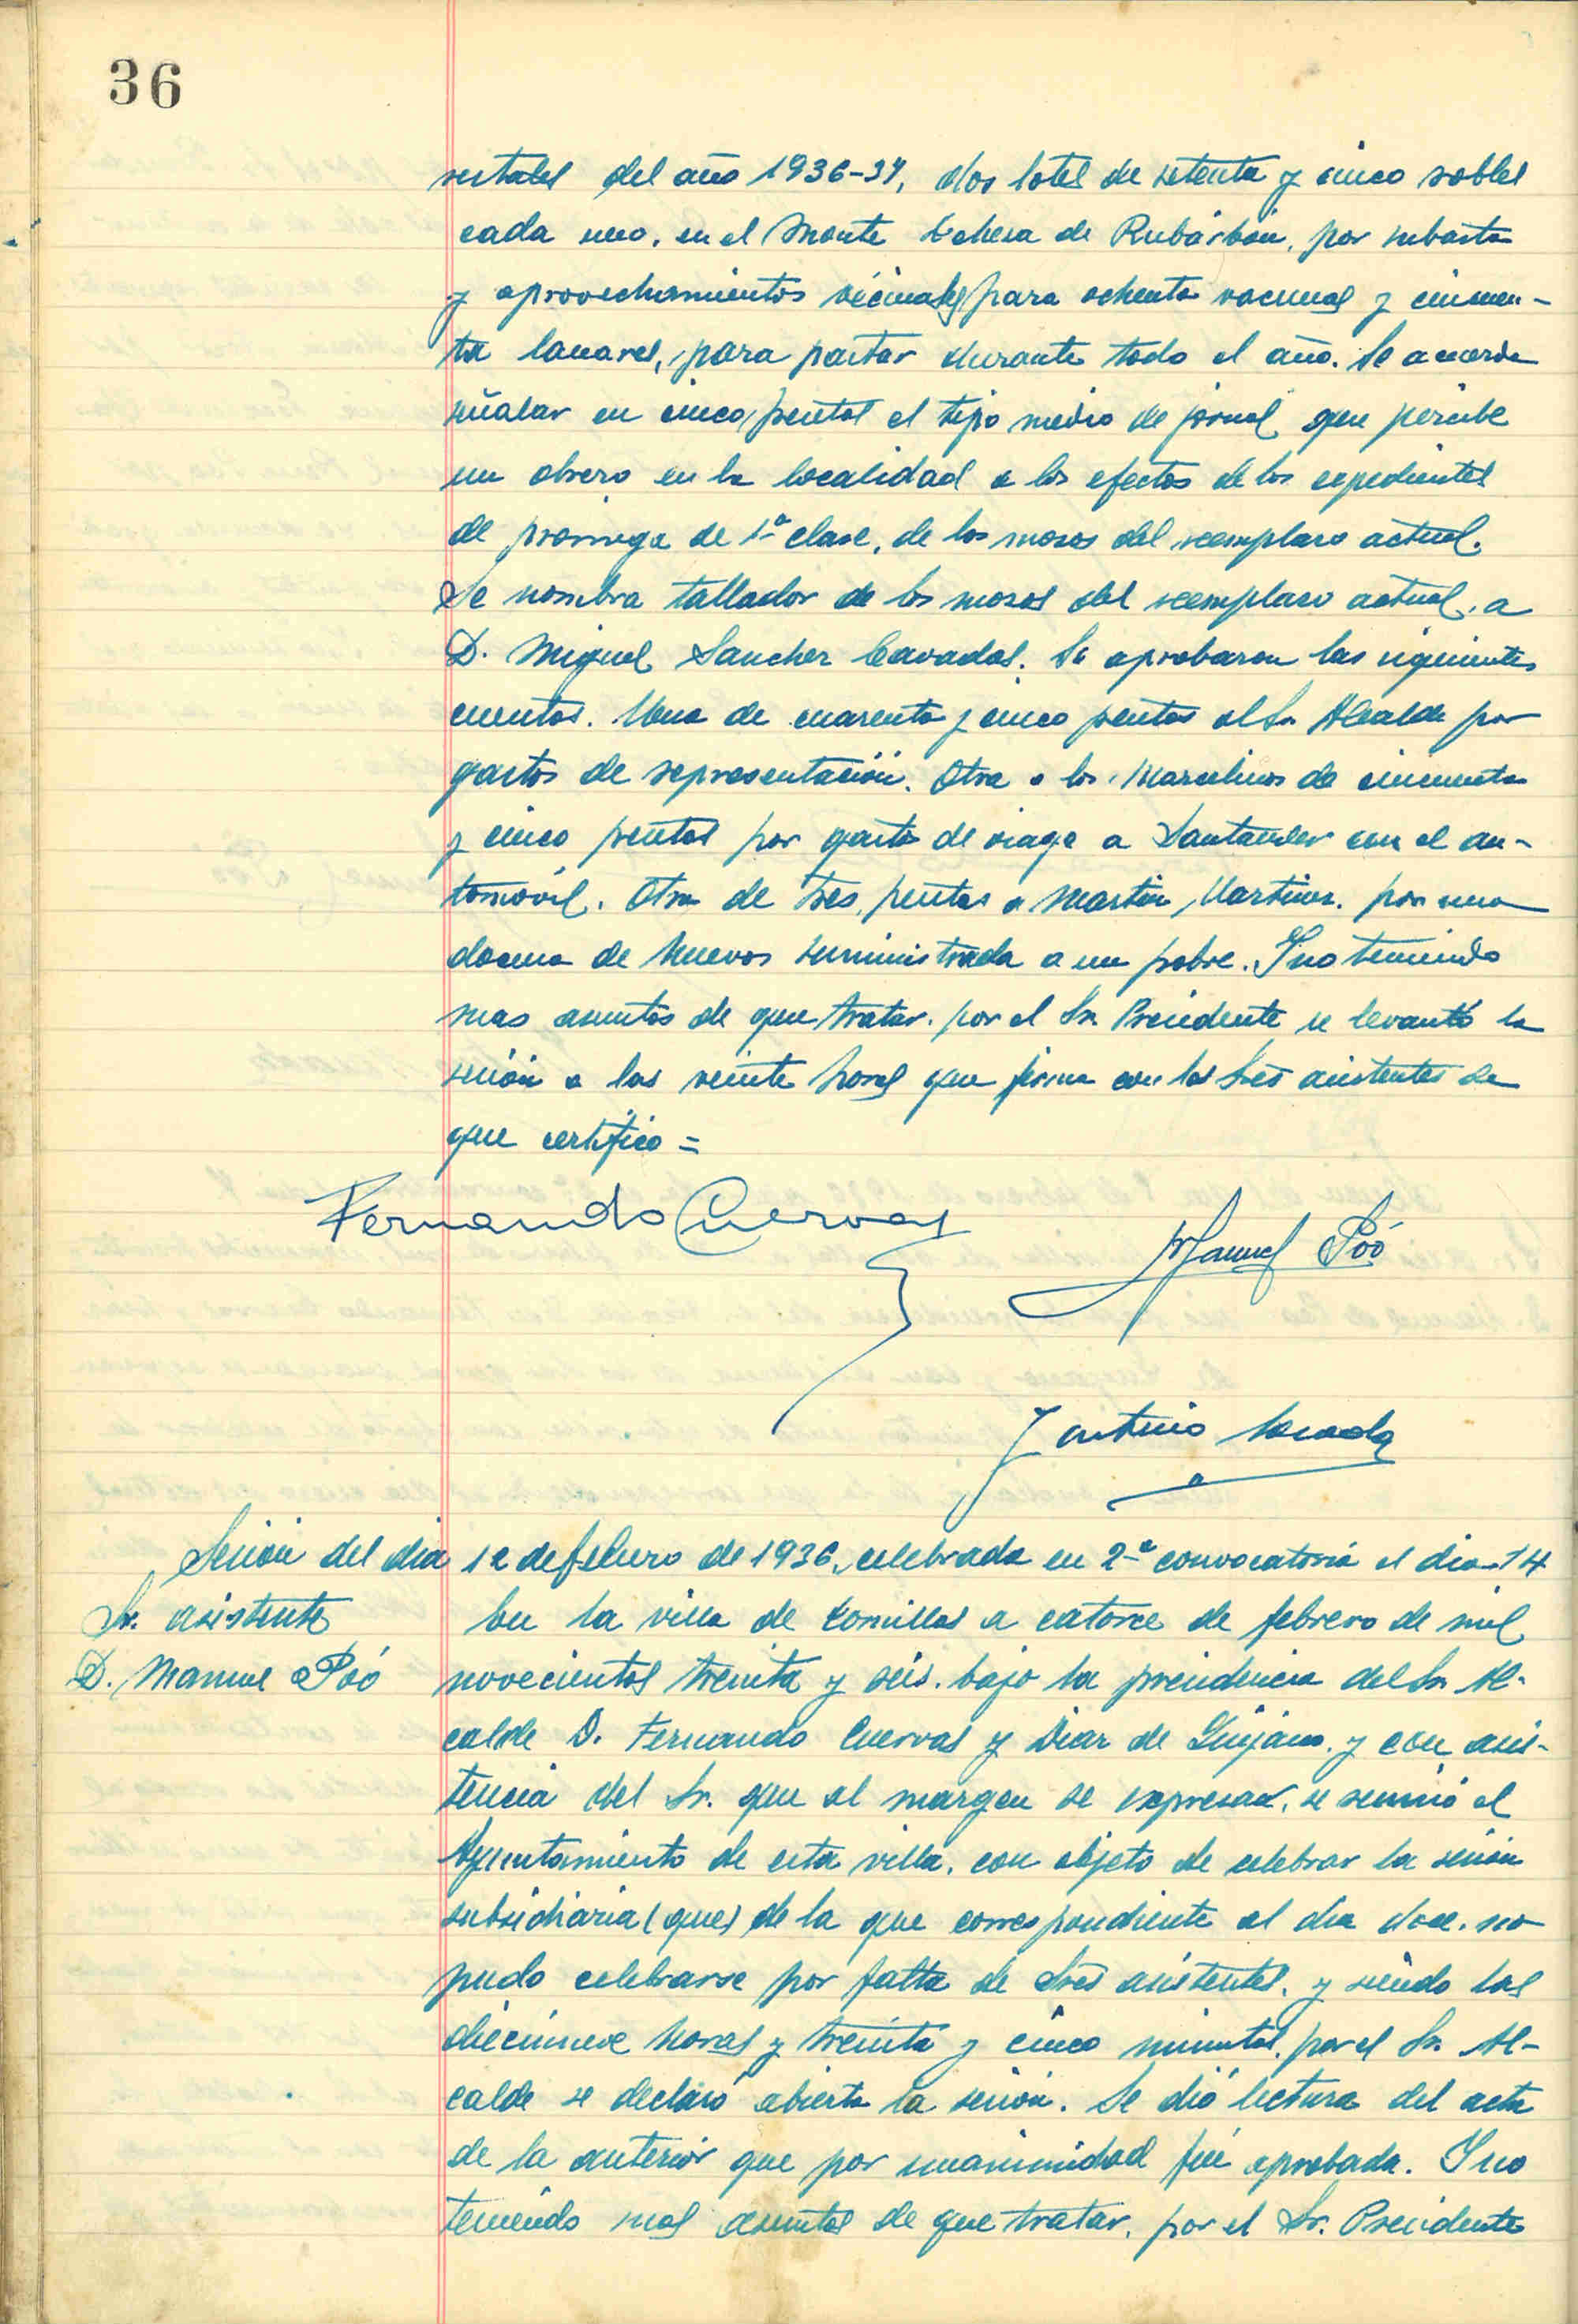 36
restales del año 1936-37, dos lotes de setenta y cinco robles
cada uno, en el Monte Dehesa de Rubárbon, por subasta
y aprovechamientos vécinales para ochenta vacunas y cincuen-
ta lanares, para pastar durante todo el año. Se acuerda
señalar en cinco pesetas el tipo medio de jornal que percibe
un obrero en la localidad a los efectos de los expedientes
de prorroga de 1ª clase, de los mozos del reemplazo actual.
Se nombra tallador de los mozos del reemplazo actual, a
D. Miguel Sanchez Cavadas. Se aprobaron las siguientes
cuentas. Una de cuarenta y cinco pesetas al Sr. Alcalde por
gastos de representación. Otra a los Marcelinos de cincuenta
y cinco pesetas por gasto de viage a Santander con el au-
tomóvil. Otra de tres pesetas a Martin Martinez. por una
docena de huevos suministrada a un pobre. Y no teniendo
mas asuntos de que tratar. por el Sr. Presidente se levantó la
sesión a las veinte horas que firma con los Sres asistentes de
que certifico =
Fernando Cuervas
Manuel Póo
Antonio
Sesión del dia 12 de febrero de 1936, celebrada en 2ª convocatoria el dia 14
Sr. asistente
D. Manuel Póo
En la villa de Comillas a catorce de febrero de mil
novecientos treinta y seis. bajo la presidencia del Sr. Al-
calde D. Fernando Cuervas y Diaz de Quijano. y con asis-
tencia del Sr. que al margen se expresa, se reunió el
Ayuntamiento de esta villa. con objeto de celebrar la sesión
subsidiaria (que) de la que correspondiente al dia doce. no
pudo celebrarse por falta de Sres asistentes, y siendo las
diecinueve horas y treinta y cinco minutos. por el Sr. Al-
calde se declaró abierta la sesión. Se dió lectura del acta
de la anterior que por unanimidad fué aprobada. Y no
teniendo mas asuntos de que tratar. por el Sr. Presidente